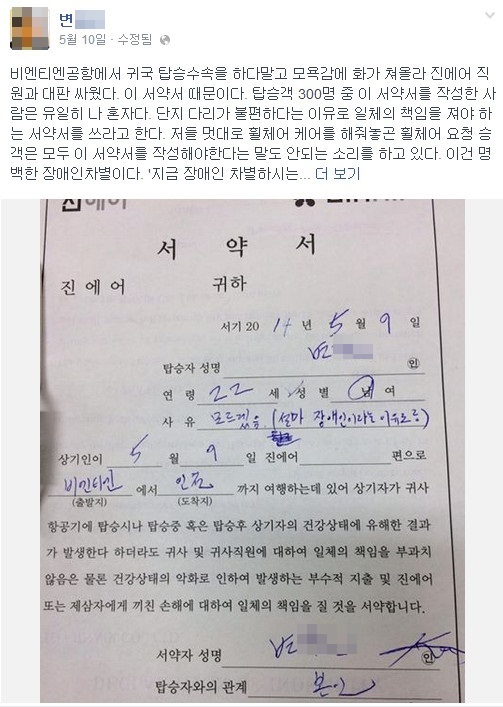 변
5월 10일 · 수정됨
비엔티엔공항에서 귀국 탑승수속을 하다말고 모욕감에 화가 쳐올라 진에어 직
원과 대판 싸웠다. 이 서약서 때문이다. 탑승객 300명 중 이 서약서를 작성한 사
람은 유일히 나 혼자다. 단지 다리가 불편하다는 이유로 일체의 책임을 져야 하
는 서약서를 쓰라고 한다. 저들 멋대로 휠체어 케어를 해줘놓곤 휠체어 요청 승
객은 모두 이 서약서를 작성해야한다는 말도 안되는 소리를 하고 있다. 이건 명
백한 장애인차별이다. '지금 장애인 차별하시는... 더 보기
진에어
서 약 서
진에어 귀하
서기 2014년 5월 9일
탑승자 성명 변 인
연 령 22 세 성 별 남 여
사 유 모르겠음. (설마 장애인이라는 이유로?)
상기인이 5 월 9 일 진에어 편으로
비엔티안 에서 인천 까지 여행하는데 있어 상기자가 귀사
(출발지) (도착지)
항공기에 탑승시나 탑승중 혹은 탑승후 상기자의 건강상태에 유해한 결과
가 발생한다 하더라도 귀사 및 귀사직원에 대하여 일체의 책임을 부과치
않음은 물론 건강상태의 악화로 인하여 발생하는 부수적 지출 및 진에어
또는 제삼자에게 끼친 손해에 대하여 일체의 책임을 질 것을 서약합니다.
서약자 성명 변 인
탑승자와의 관계 본인